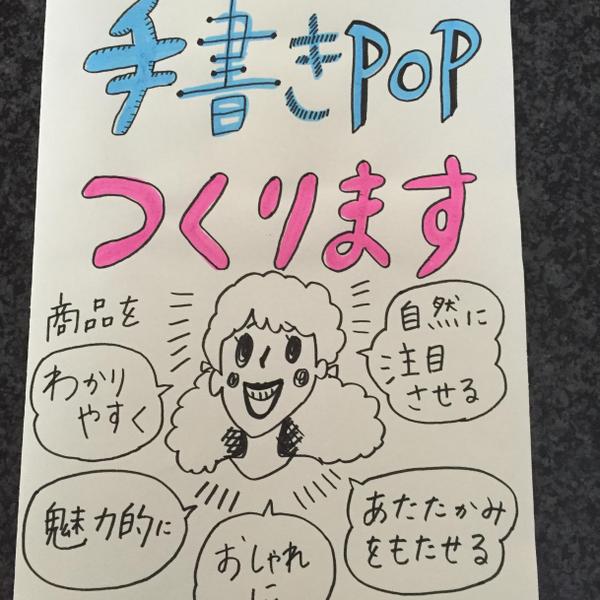 手書きPOP
つくります
商品を
わかり
やすく
自然に
注目
させる
魅力的に
おしゃれ
に
あたたかみ
をもたせる